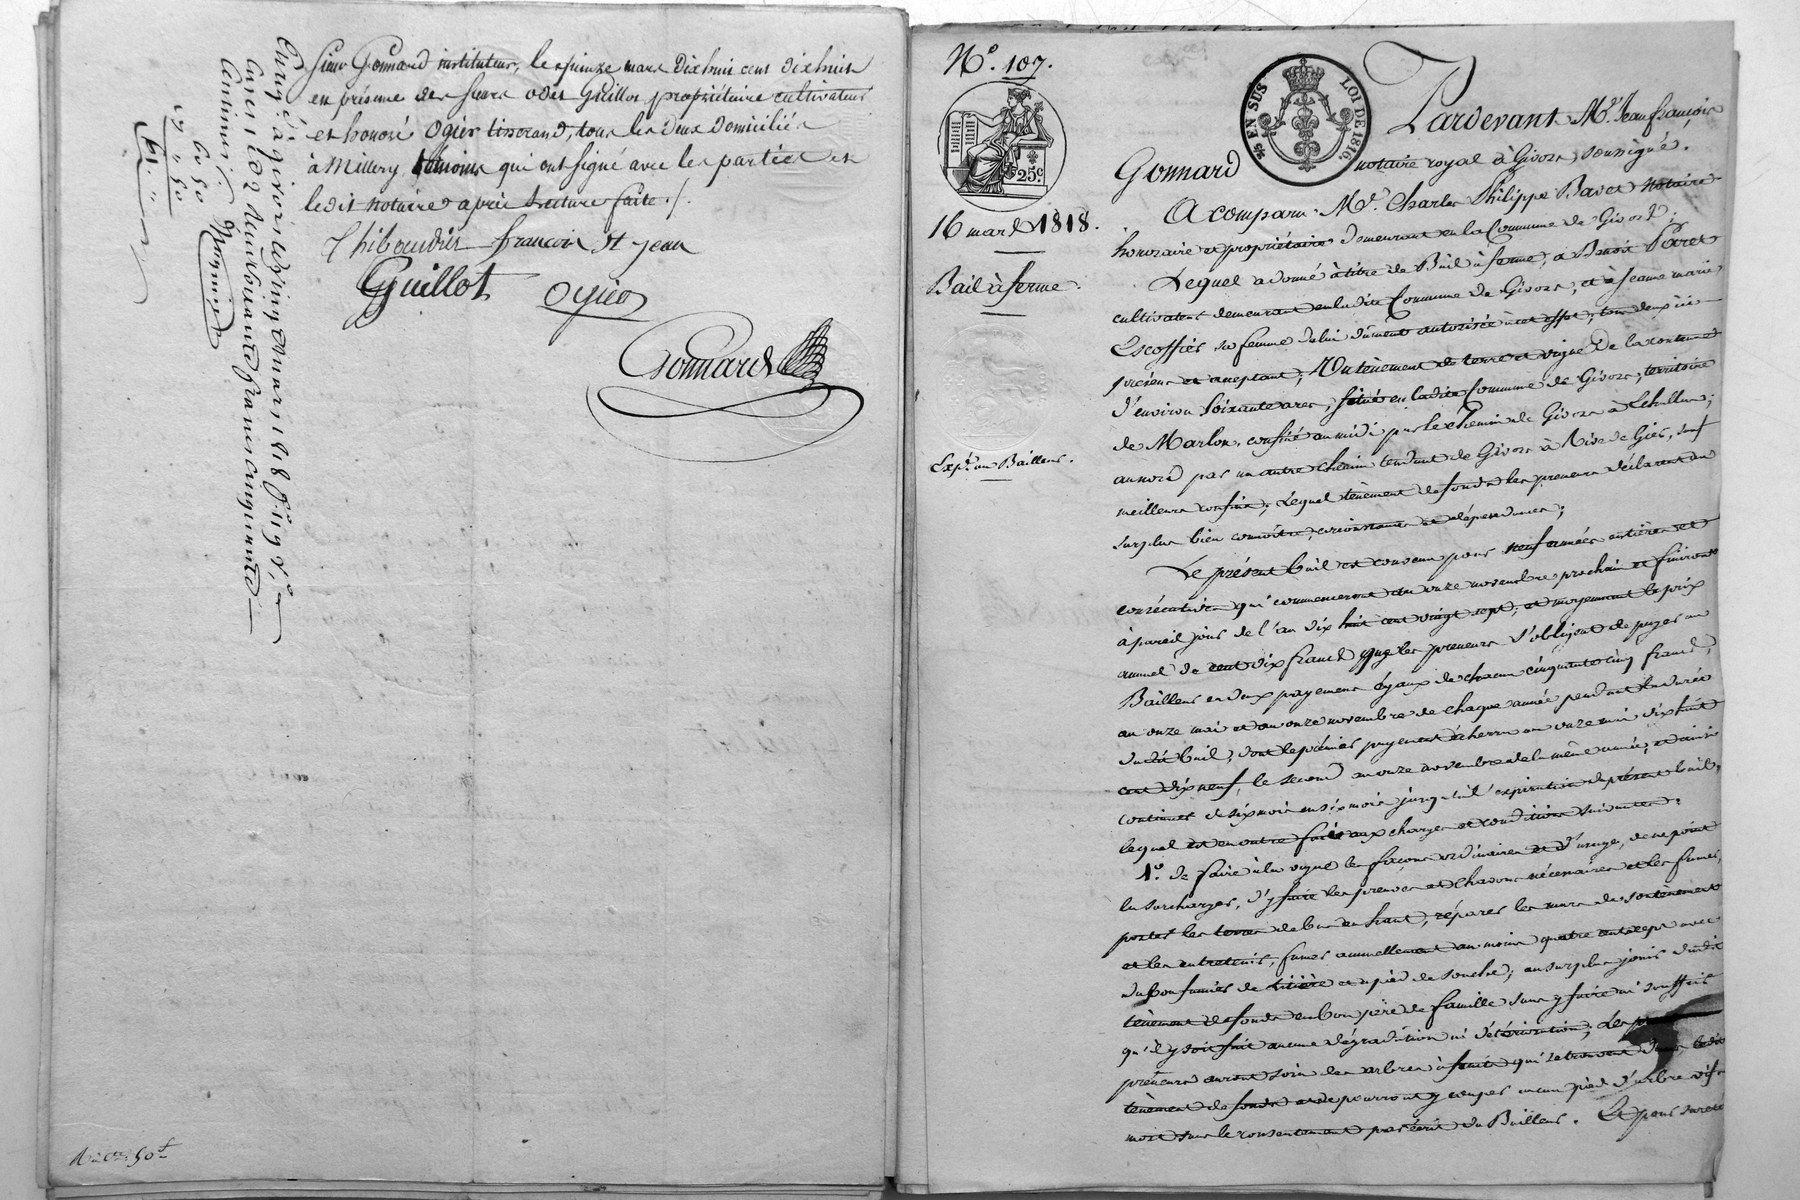 Sieur Gonnard instituteur, le quinze mars dix huit cent dix huit
en présence des sieurs odet Guillot propriétaire cultivateur
et honoré Ogier tisserand, tous les deux domiciliés
à Millery témoins qui ont signé avec les parties et
ledit notaire après lecture faite ./.
Thibaudier françois St jean
Guillot Ogier
Gonnard
Enrg. à givors le vingt mars 1818
cinq francs cinquante
centimes
5 50
55
A 2 cts 50 f
N.° 107.
25c.
16 mars 1818.
Bail à ferme.
Expd. au Bailleur.
EN SUS
LOI DE 1816.
Pardevant Me. Jean françois
Gonnard notaire royal à Givors, soussigné.
A comparu Mr. Charles Philippe Bavet notaire
honoraire et propriétaire demeurant en la Commune de Givors;
Lequel a donné à titre de Bail à ferme, à Benoit Poret
cultivateur demeurant en ladite Commune de Givors, et à Jeanne marie
Escoffier sa femme de lui dûment autorisée à cet effet, tous deux ici
présens et acceptant; Un tènement de terre et vigne de la contenue
d'environ soixante ares, situé en ladite Commune de Givors, territoire
de Marlon, confiné au midi par le chemin de Givors à Echallas;
au nord par un autre chemin tendant de Givors à Rive de Gier, sauf
meilleurs confins; Lequel tènement de fonds les preneurs déclarent au
surplus bien connoître, circonstances et dépendances;
Le présent bail est convenu pour neuf années entières et
consécutives qui commenceront au onze novembre prochain et finiront
à pareil jour de l'an dix huit cent vingt sept, et moyennant le prix
annuel de cent dix francs que les preneurs s'obligent de payer au
Bailleur en deux payemens égaux de chacun cinquante cinq francs,
au onze mai et au onze novembre de chaque année pendant la durée
dudit bail, dont le premier payement écherra au onze mai dix huit
cent dix neuf, le second au onze novembre de la même année, et ainsi
continuer de six mois en six mois jusqu'à l'expiration du présent bail,
lequel est en outre fait aux charges et conditions suivantes:
1.° de faire à la vigne les façons ordinaires et d'usage, de ne point
la surcharger, d'y faire les preuves et chavons nécessaires et les fumer,
porter les terres de bas en haut, réparer les murs de soutènement
et les entretenir, fumer annuellement au moins quatre cents ceps avec
du bon fumier de litière et a pied de souche; au surplus jouir dudit
tènement de fonds en bon père de famille sans y faire ni souffrir
qu'il y soit fait aucune dégradation ni détérioration; Les
preneurs auront soin des arbres à fruits qui se trouvent dans ledit
tènement de fonds et ne pourront y couper aucun pied d'arbre vif ou
mort sans le consentement par écrit du Bailleur. Et pour sureté